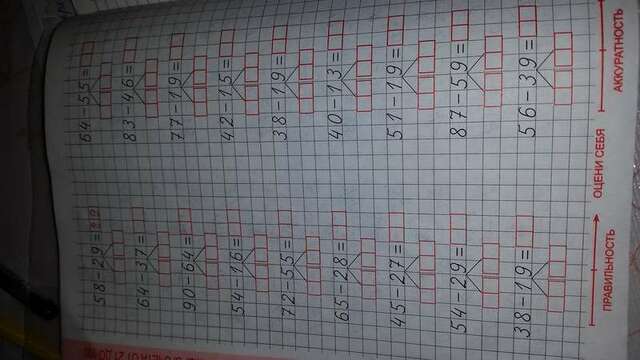 58-29=
64-37=
90-64=
54-16=
72-55=
65-28=
45-27=
54-29=
38-19=
64-55=
83-46=
77-19=
42-15=
38-19=
40-13=
51-19=
87-59=
56-39=
ПРАВИЛЬНОСТЬ
ОЦЕНИ СЕБЯ
АККУРАТНОСТЬ